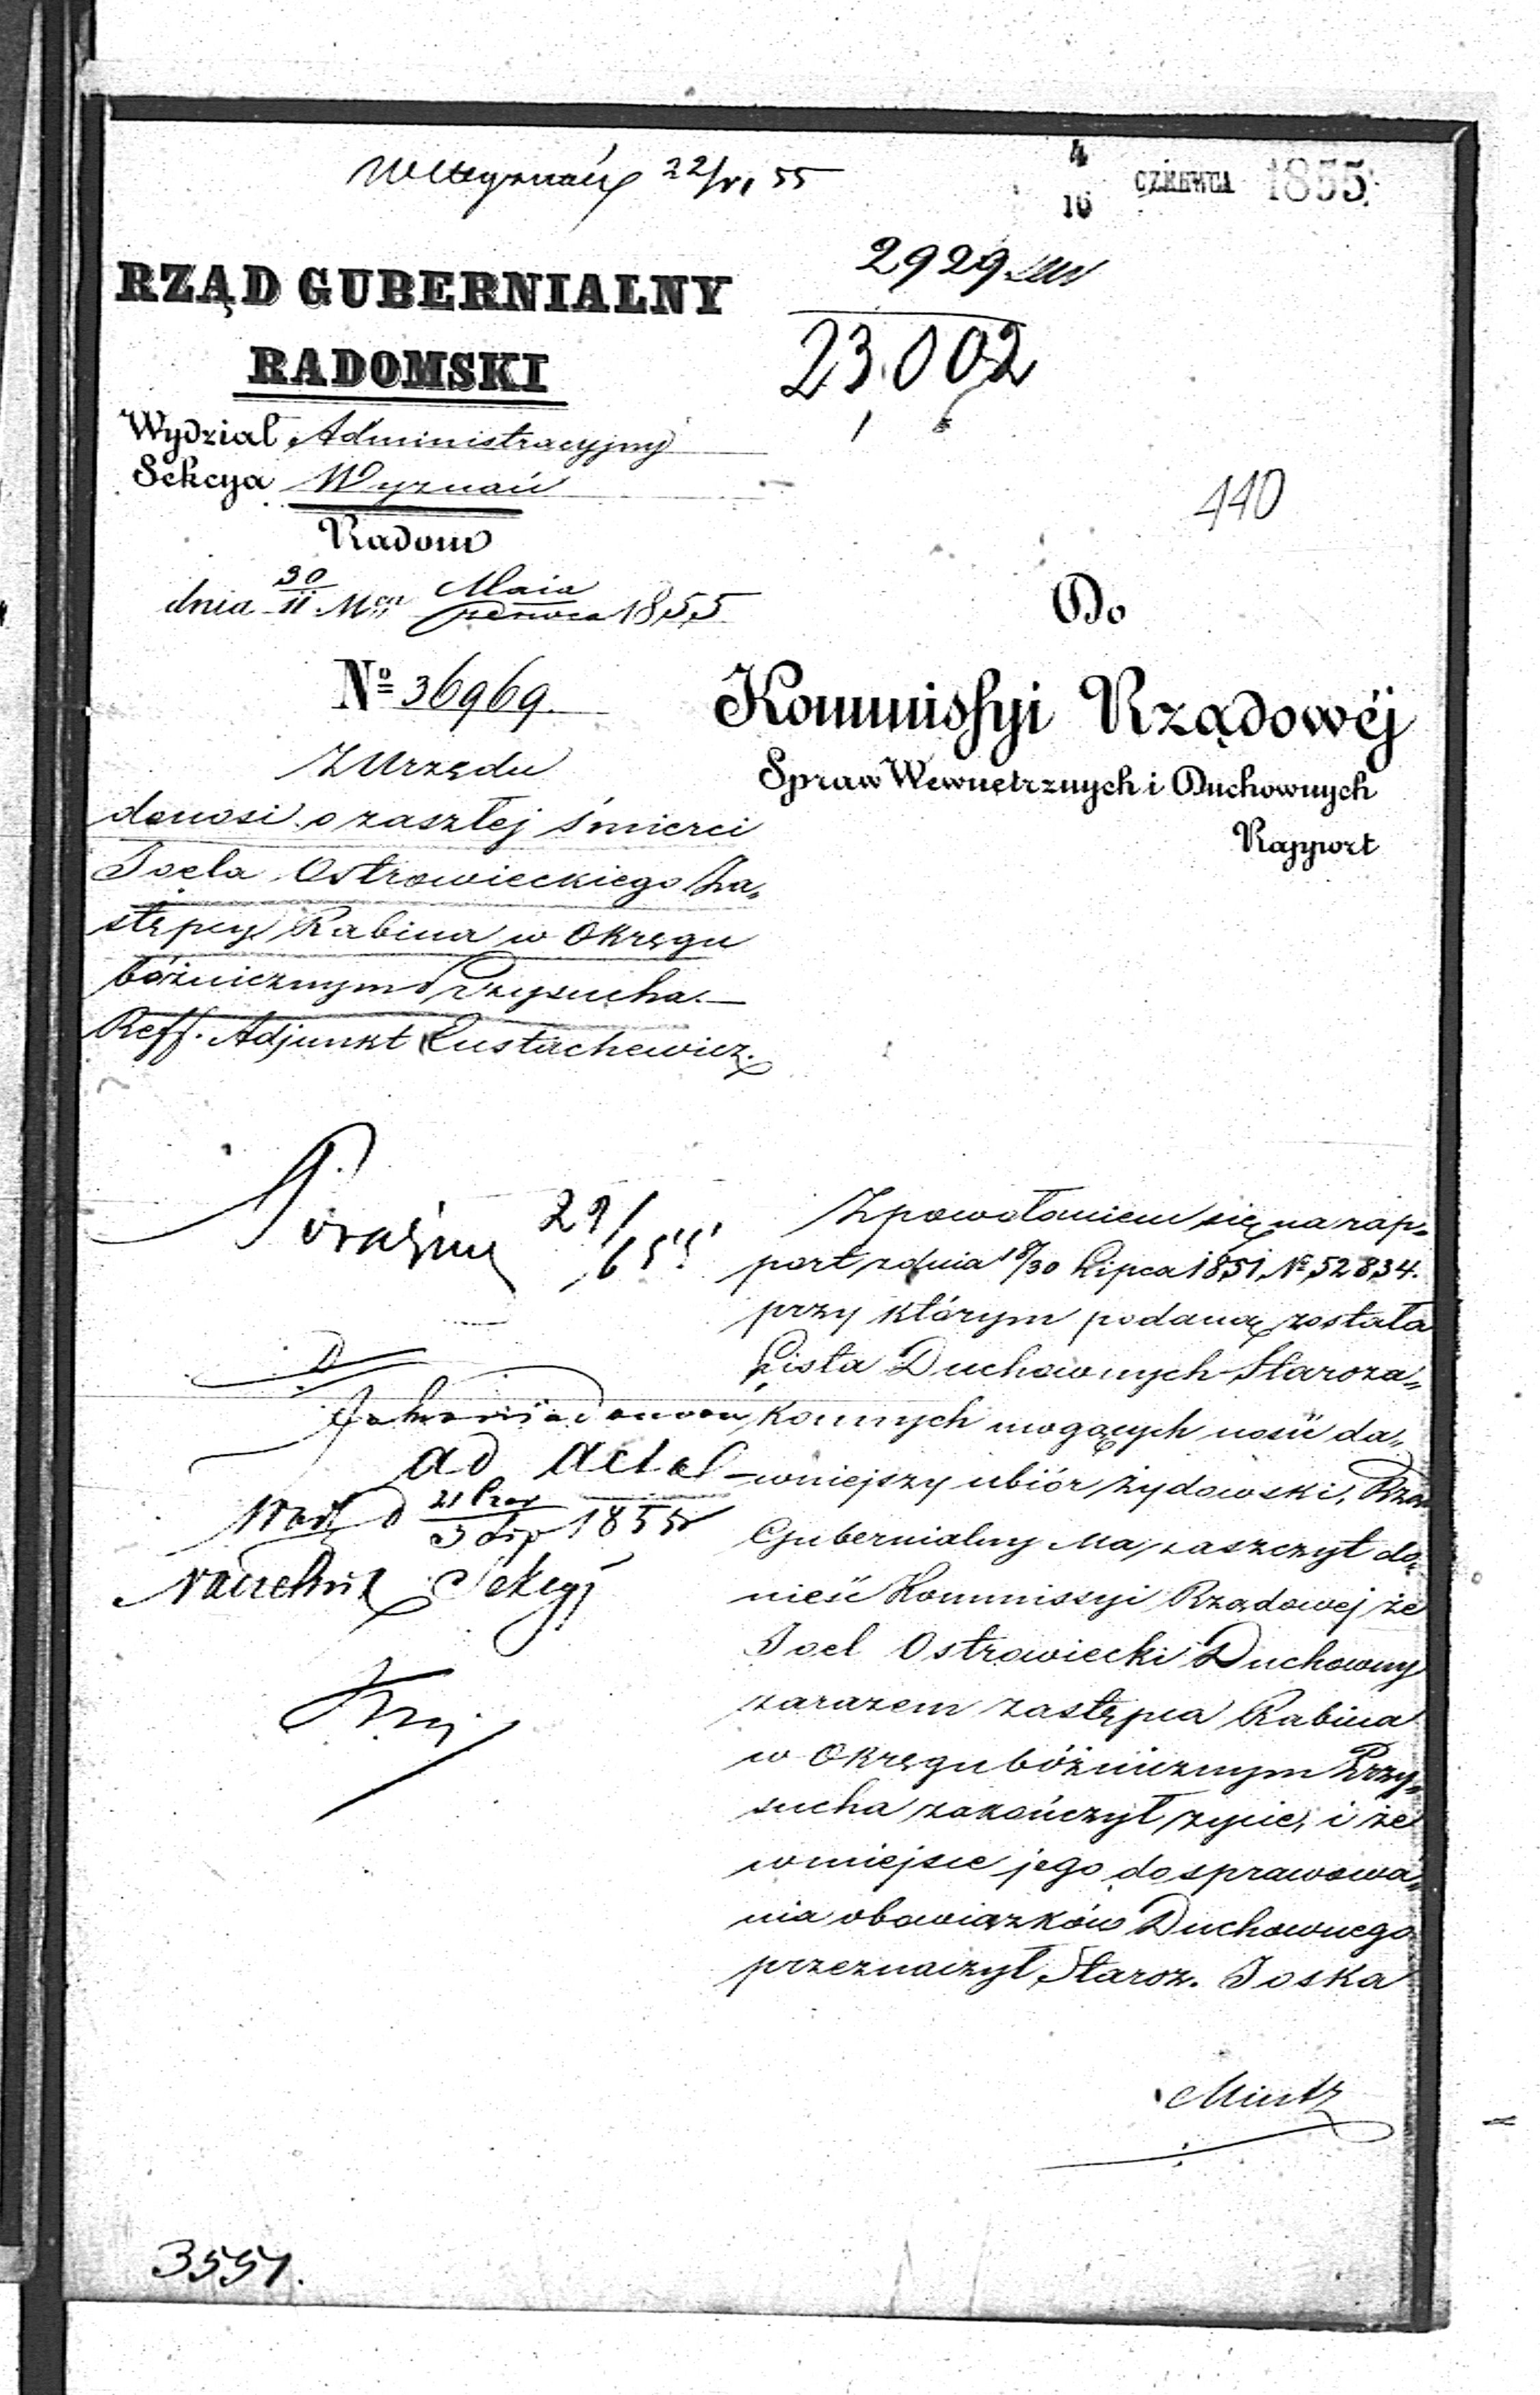 22/VI 55
4
16 CZERWCA 1855
2929
23.002
RZĄD GUBERNIALNY
RADOMSKI
Wydział Administracyjny
Sekcya Wyznań
Radom
440
dnia 30/11 Mca Maia/Czerwca 1855
Do
№ 36969.
Kommissyi Rządowéj
Spraw Wewnętrznych i Duchownych
Rapport
Z Urzędu
donosi o zaszłej śmierci
Joela Ostrowieckiego Za„
stępcy Rabina w Okręgu
bóżnicznym Przysucha.—
Reff. Adjunkt Eustachewicz.
29/6 55
Z powołaniem się na rap„
port z dnia 18/30 Lipca 1851 № 52834.
przy którym podaną została
Lista Duchownych Staroza„
konnych mogących nosić da„
wniejszy ubiór żydowski, Rząd
Gubernialny ma zaszczyt do„
nieść Kommissyi Rządowej że
Joel Ostrowiecki Duchowny
zarazem zastępca Rabina
w Okręgu bóżnicznym Przy„
sucha zakończył życie, i że
w miejsce jego do sprawowa„
nia obowiązków Duchownego
przeznaczył Staroz. Joska
Mintz
ad acta
21 Czer/3 Lip 1855
Naczelnik Sekcyi
3551.